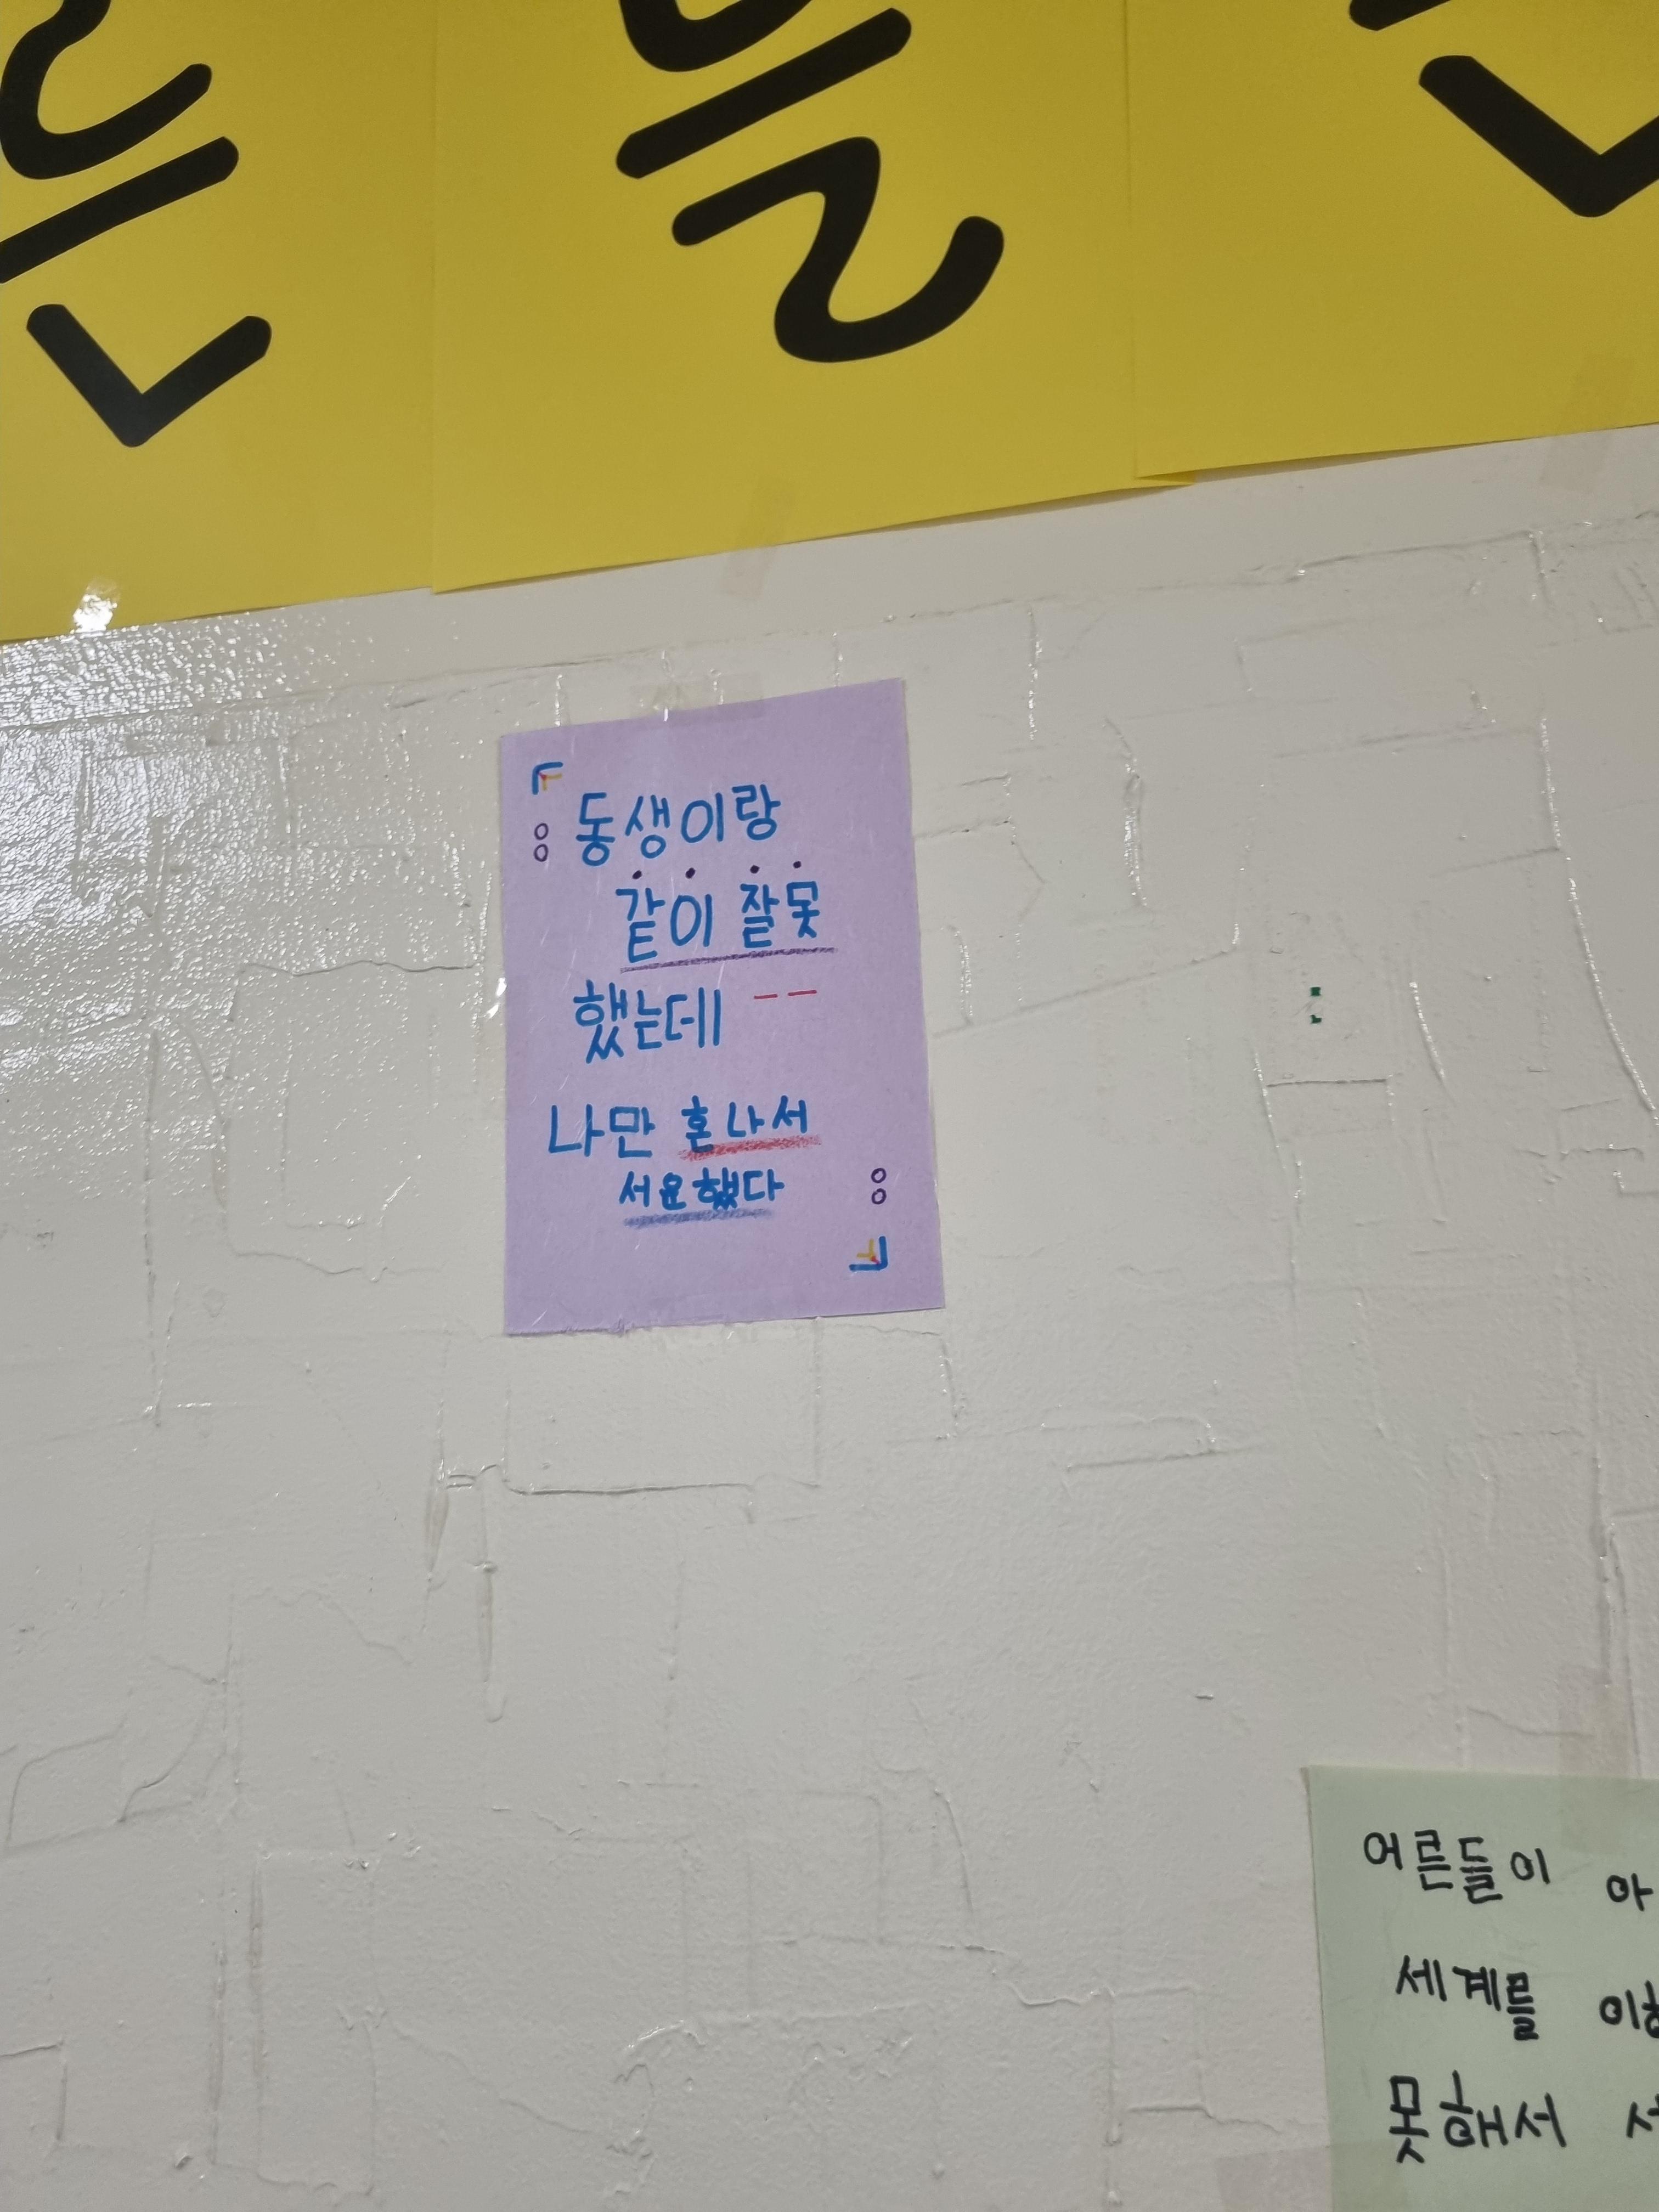 동생이랑
같이 잘못
했는데
나만 혼나서
서운했다
어른들이
세계를
못해서